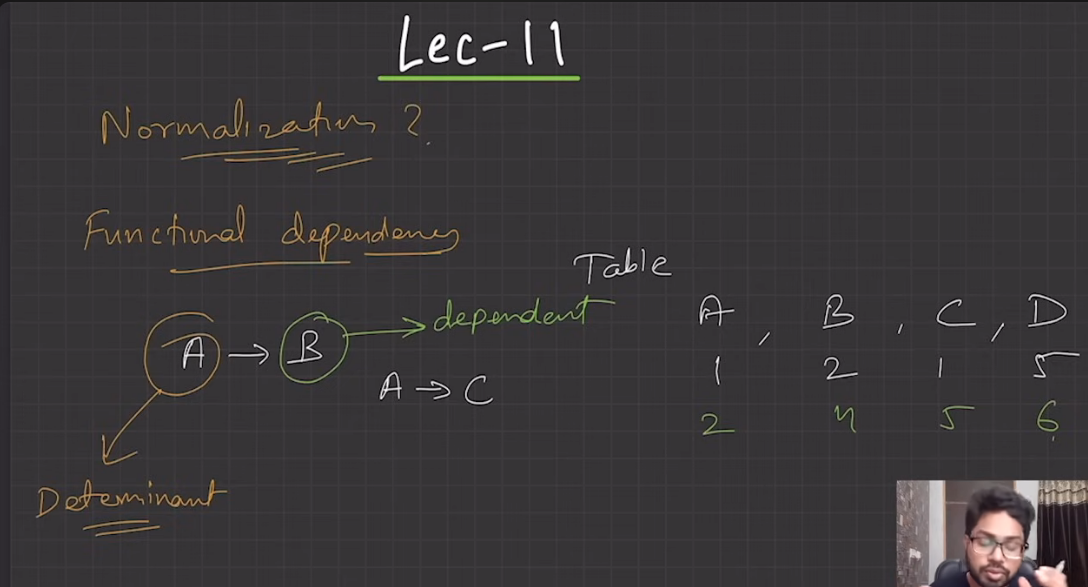 Lec-11
Normalization ?
Functional dependency
A → B → dependent
A → C
Determinant
Table
A , B , C , D
1 2 1 5
2 4 5 6